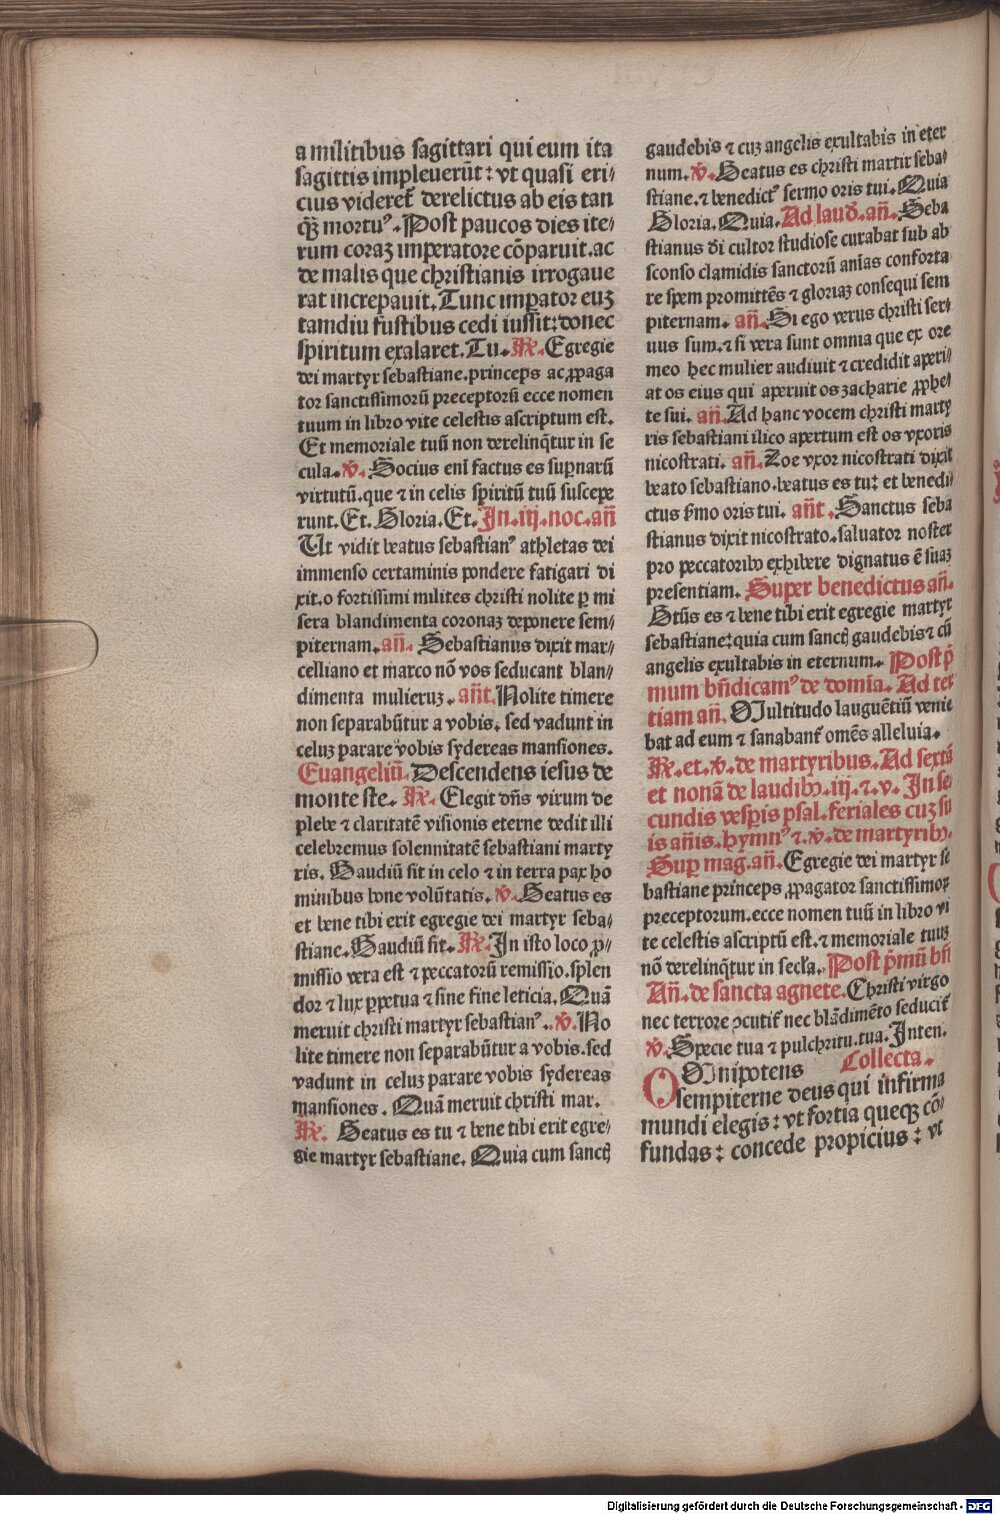 a militibus sagittari qui eum ita
sagittis impleuerūt: vt quasi eri/
cius videret̄ derelictus ab eis tan
qȝ̄ mortuꝰ. Post paucos dies ite/
rum coraꝫ imperatore cōparuit.ac
de malis que christianis irrogaue
rat increpauit. Tunc imꝑator euꝫ
tamdiu fustibus cedi iussit:donec
spiritum exalaret. Tu. R̄. Egregie
dei martyr sebastiane.princeps ac ꝓpaga
tor sanctissimorū preceptorū ecce nomen
tuum in libro vite celestis ascriptum est.
Et memoriale tuū non derelinq̄tur in se
cula. v̄. Socius eni factus es suꝑnarū
virtutū.que ⁊ in celis spiritū tuū suscepe
runt. Et. Gloria. Et. In.iij.noc.an̄
Ut vidit beatus sebastianꝰ athletas dei
immenso certaminis pondere fatigari di
xit.o fortissimi milites christi nolite ꝑ mi
sera blandimenta coronaꝫ deponere sem/
piternam. an̄. Sebastianus dixit mar/
celliano et marco nō vos seducant blan/
dimenta mulieruꝫ. an̄t. Nolite timere
non separabūtur a vobis. sed vadunt in
celuꝫ parare vobis sydereas mansiones.
Euangeliū. Descendens iesus de
monte ste. R̄. Elegit dn̄s virum de
plebe ⁊ claritatē visionis eterne dedit illi
celebremus solennitatē sebastiani marty
ris. Gaudiū sit in celo ⁊ in terra pax ho
minibus bone volūtatis. v̄. Beatus es
et bene tibi erit egregie dei martyr seba/
stiane. Gaudiū sit. R̄. In isto loco ꝓ/
missio vera est ⁊ peccatorū remissio.splen
dor ⁊ lux ꝑpetua ⁊ sine fine leticia. Quā
meruit christi martyr sebastianꝰ. v̄. No
lite timere non separabūtur a vobis.sed
vadunt in celuꝫ parare vobis sydereas
mansiones. Quā meruit christi mar.
R̄. Beatus es tu ⁊ bene tibi erit egre/
gie martyr sebastiane. Quia cum sanctꝭ
gaudebis ⁊ cuꝫ angelis exultabis in eter
num. v̄. Beatus es christi martir seba/
stiane.⁊ benedictꝰ sermo oris tui. Quia
Gloria. Quia. Ad laud̄. an̄. Seba
stianus di cultor studiose curabat sub ab
sconso clamidis sanctorū aīas conforta
re spem promittēs ⁊ gloriaꝫ consequi sem
piternam. an̄. Si ego verus christi ser/
uus sum.⁊ si vera sunt omnia que ex ore
meo hec mulier audiuit ⁊ credidit aperi/
at os eius qui aperuit os zacharie ꝓphe/
te sui. an̄. Ad hanc vocem christi marty
ris sebastiani ilico apertum est os vxoris
nicostrati. an̄. Zoe vxor nicostrati dixit
beato sebastiano.beatus es tu: et benedi
ctus ẜmo oris tui. an̄t. Sanctus seba
stianus dixit nicostrato.saluator noster
pro peccatoribꝫ exhibere dignatus ē suaꝫ
presentiam. Super benedictus an̄.
Btūs es ⁊ bene tibi erit egregie martyr
sebastiane:quia cum sanctꝭ gaudebis ⁊ cū
angelis exultabis in eternum. Post p̄
mum bn̄dicamꝰ de domīa. Ad ter
tiam an̄. Multitudo lauguētiū venie
bat ad eum ⁊ sanabant̄ omēs alleluia.
R̄.et.v̄.de martyribus. Ad sextā
et nonā de laudibꝫ.iij.⁊.v. In se
cundis vesꝑis psal.feriales cuꝫ su
is an̄is. hymnꝰ ⁊.v̄.de martyribꝫ.
Suꝑ mag.an̄. Egregie dei martyr se
bastiane princeps ꝓpagator sanctissimoꝝ
preceptorum.ecce nomen tuū in libro vi
te celestis ascriptū est.⁊ memoriale tuuꝫ
nō derelinq̄tur in secl̄a. Post p̄mū bn̄
An̄.de sancta agnete. Christi virgo
nec terrore ↄcutit̄ nec blādimēto seducit̄
v̄. Specie tua ⁊ pulchritu.tua. Inten.
Collecta.
OMnipotens
sempiterne deus qui infirma
mundi elegis: vt fortia queqȝ cō/
fundas: concede propicius: vt
Digitalisierung gefördert durch die Deutsche Forschungsgemeinschaft - DFG